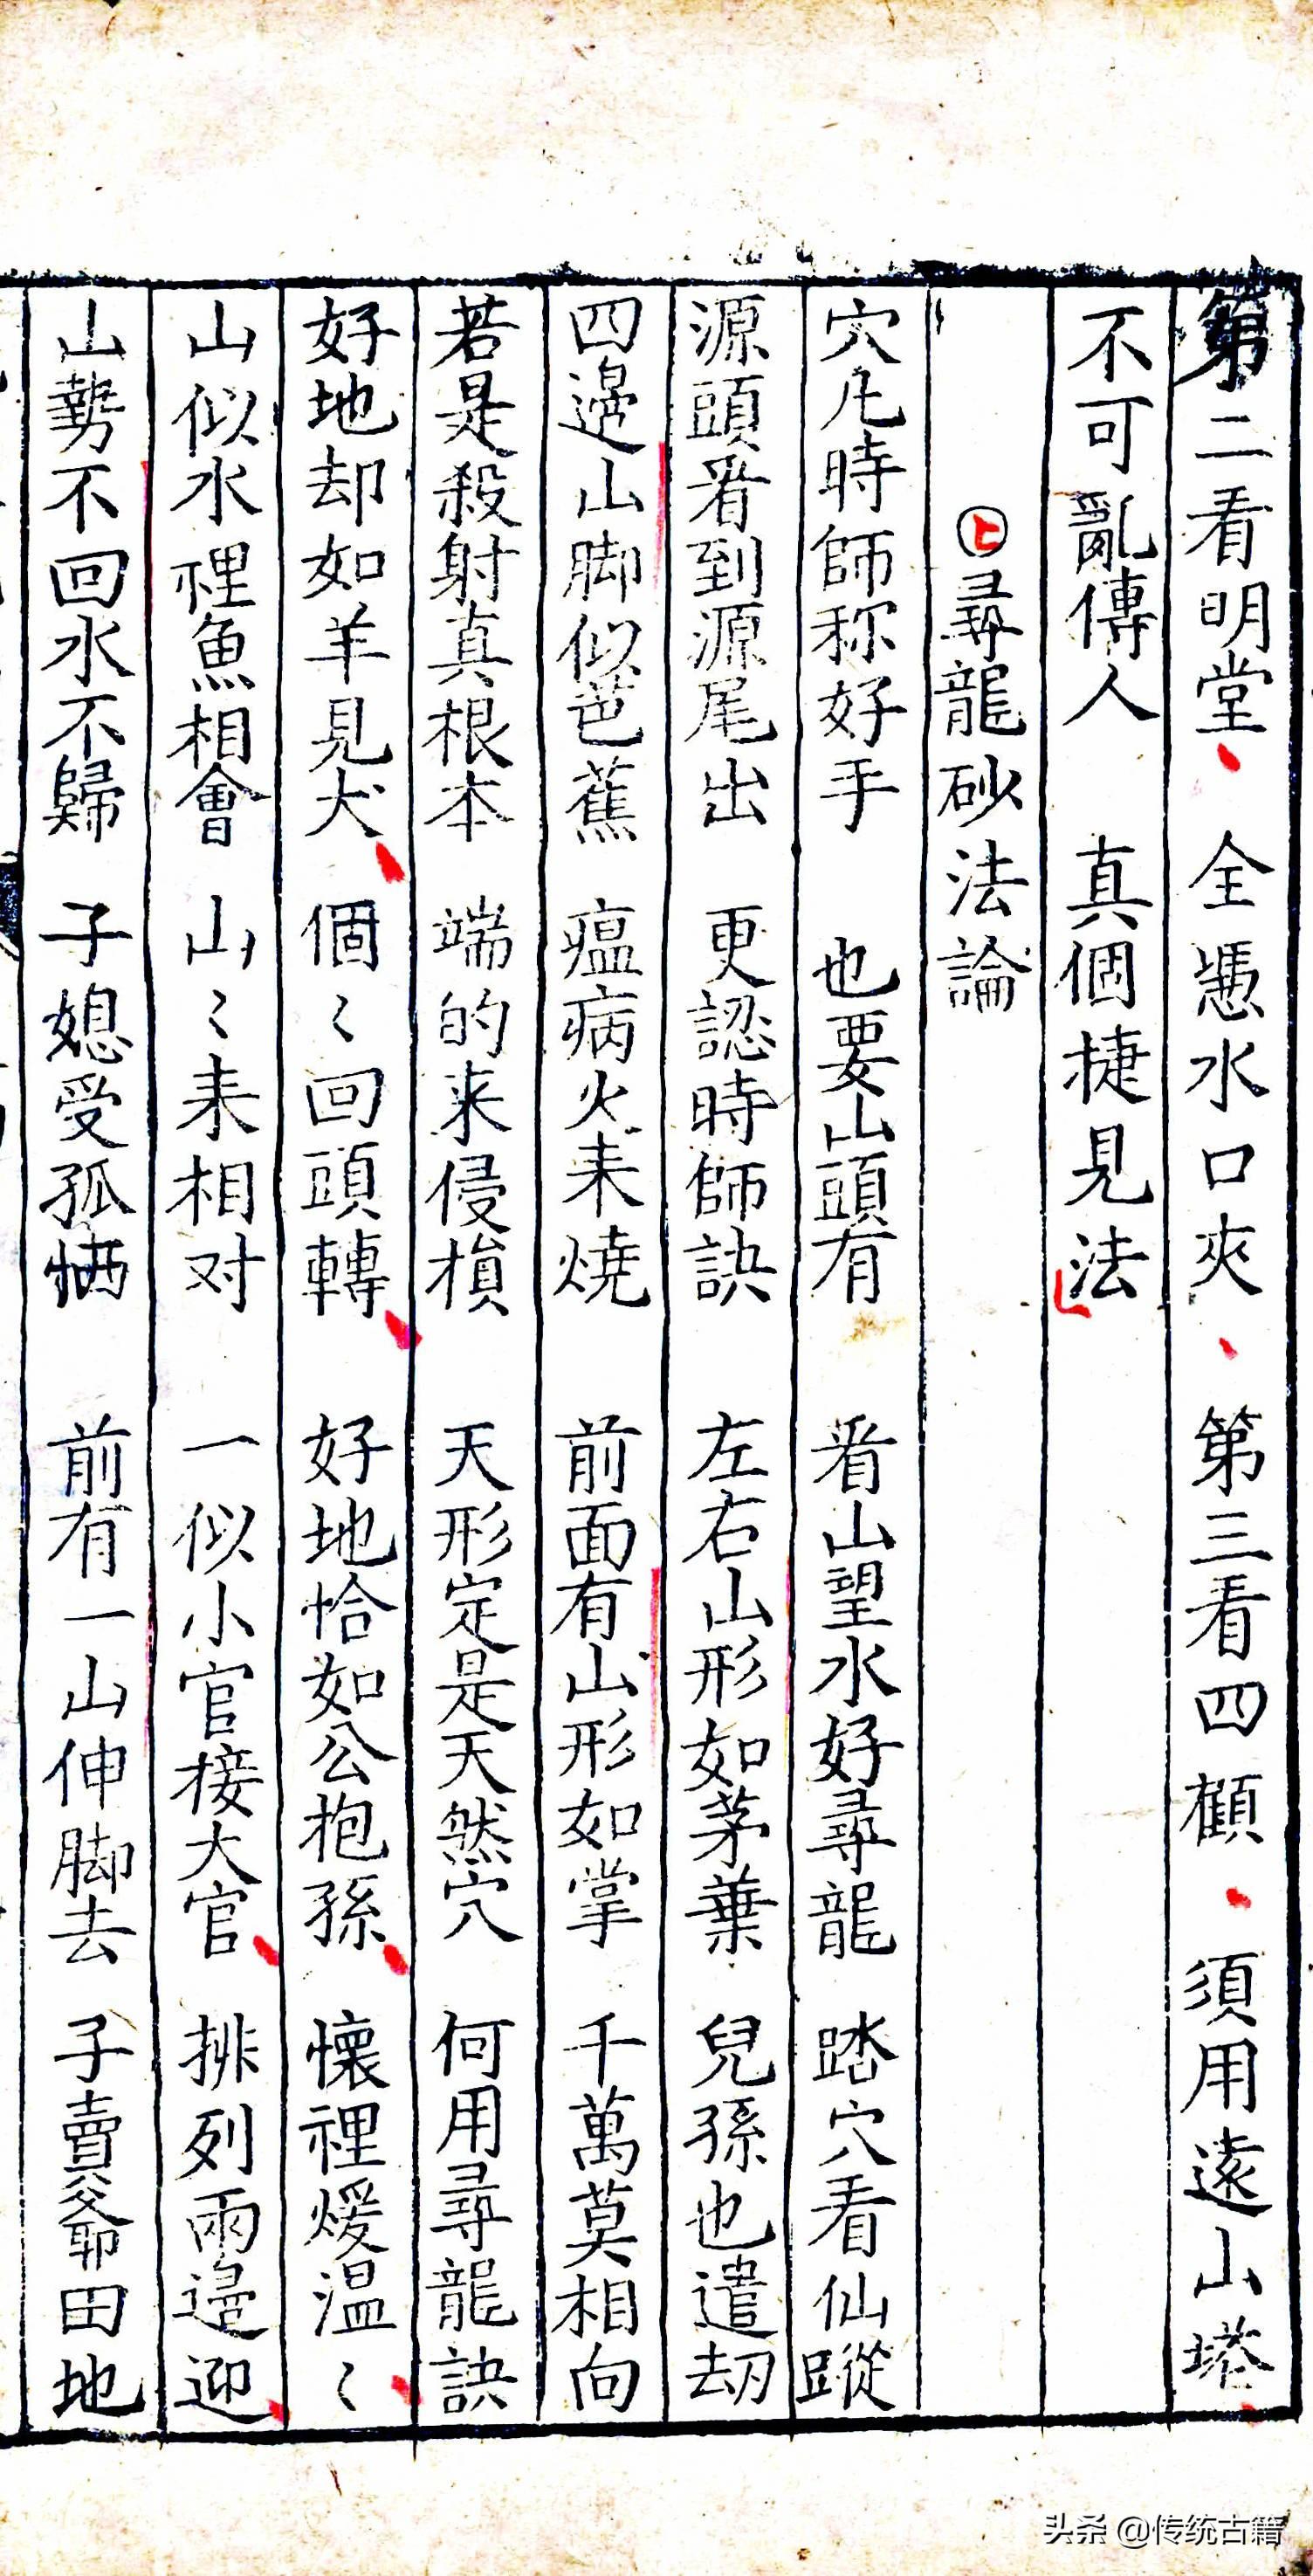 第二看明堂 全憑水口夾 第三看四顧 須用遠山塔
不可亂傳人 真個捷見法
尋龍砂法論
穴凢時師称好手 也要山頭有 㸔山望水好尋龍 踏穴看仙蹤
源頭㸔到源尾出 更認時師訣 左右山形如茅葉 兒孫也遣劫
四邉山脚似芭蕉 瘟病火耒燒 前面有山形如掌 千萬莫相向
若是殺射真根本 端的来侵損 天形定是天然穴 何用尋龍訣
好地却如羊見犬 個〻回頭轉 好地恰如公抱孫 懷裡煖温〻
山似水裡魚相會 山〻耒相对 一似小官接大官 排列兩邉迎
山勢不回水不歸 子媳受孤恓 前有一山伸脚去 子賣爺田地
头条 @传统古籍